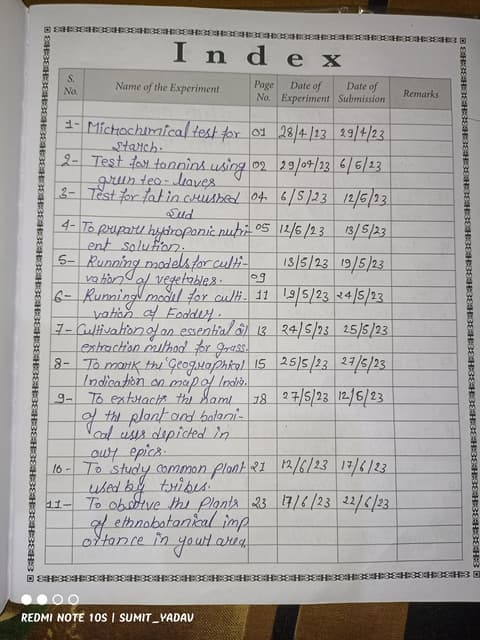 Index
S. No. Name of the Experiment Page No. Date of Experiment Date of Submission Remarks
1- Microchimical test for 01 28/4/23 29/4/23
starch.
2- Test for tannins using 02 29/04/23 6/5/23
green tea-leaves
3- Test for fat in crushed 04 6/5/23 12/5/23
sud
4- To prepare hydroponic nutri- 05 12/5/23 13/5/23
ent solution.
5- Running models for culti- 13/5/23 19/5/23
vation of vegetables. 09
6- Running model for culti- 11 19/5/23 24/5/23
vation of Fodder.
7- Cultivation of an essential oil 13 24/5/23 25/5/23
extraction method for grass.
8- To mark the Geographical 15 25/5/23 27/5/23
Indication on map of India.
9- To extracts the nami 18 27/5/23 12/6/23
of the plant and botani-
cal uses depicted in
our epics.
10- To study common plant 21 12/6/23 17/6/23
used by tribes.
11- To observe the plants 23 17/6/23 22/6/23
of ethnobotanical imp
ortance in your area.
REDMI NOTE 10S | SUMIT_YADAV